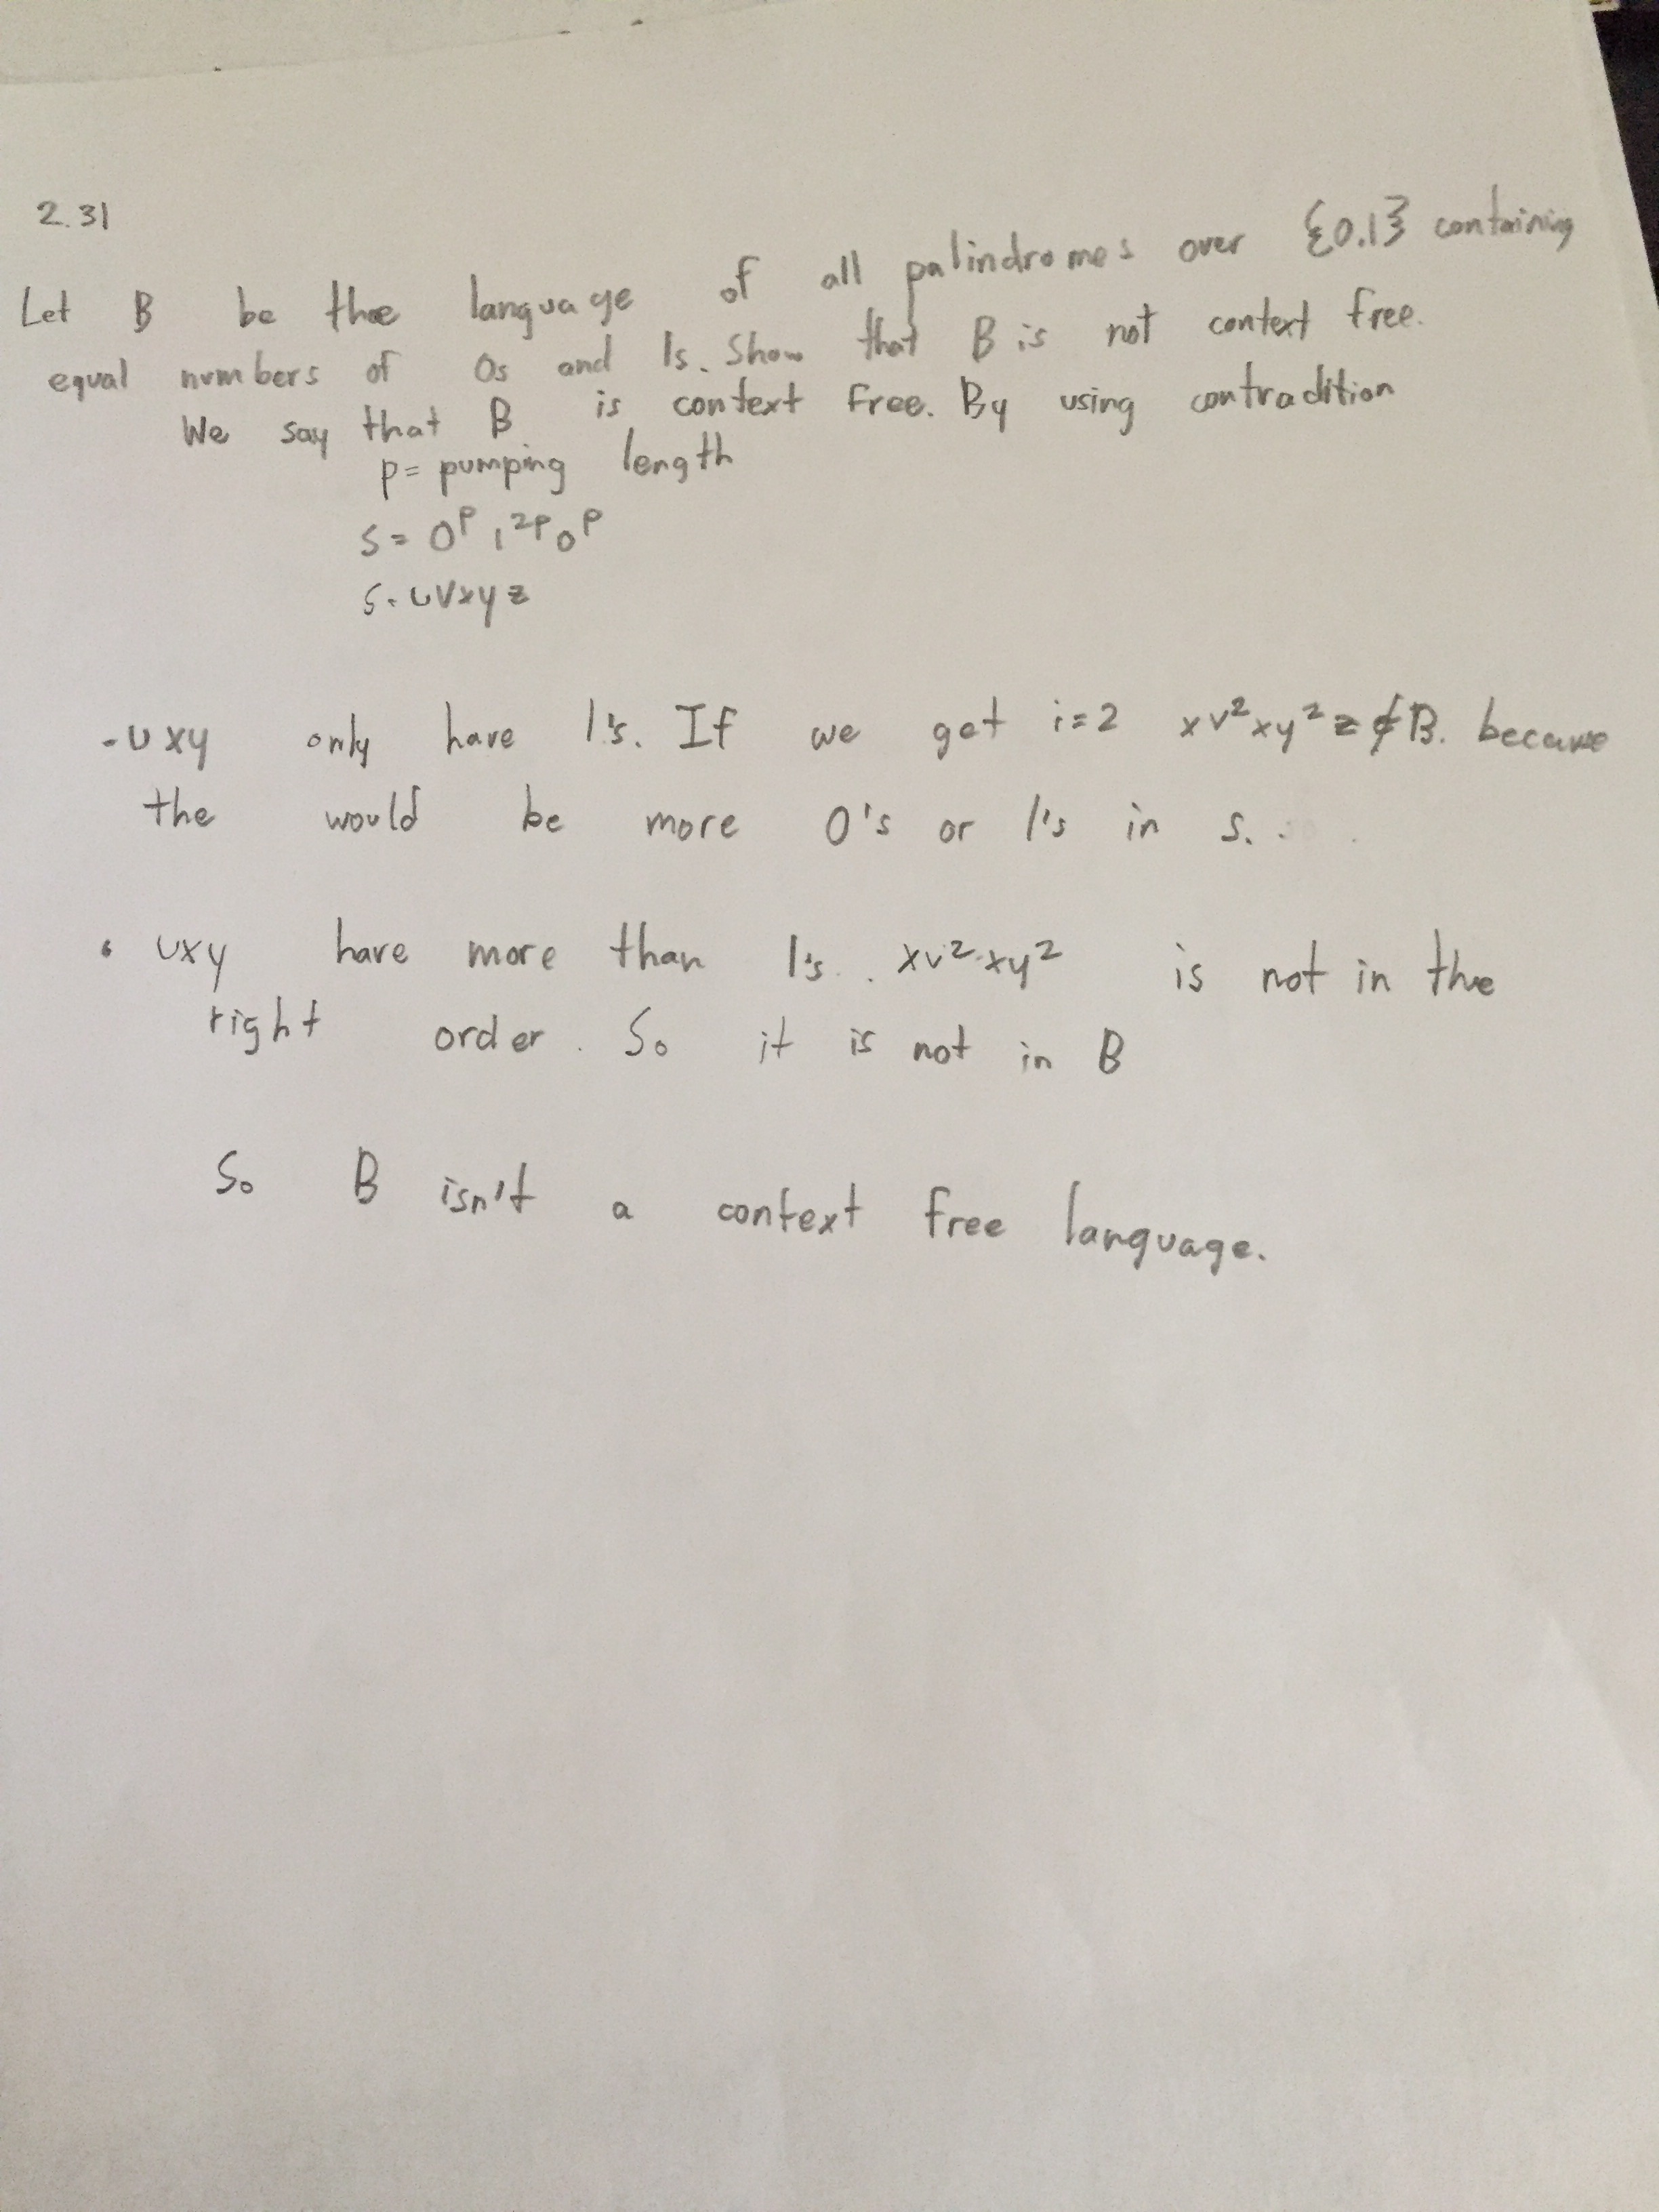 2.31
Let B be the language of all palindromes over {0.1} containing
equal numbers of 0s and 1s. Show that B is not context free.
We say that B is context free. By using contradition
p= pumping length
s= 0^p 1^2p 0^p
s= uvxyz
-uxy only have 1's. If we get i=2 xv²xy²z∉B. because
the would be more 0's or 1's in s.
• uxy have more than 1's. xv²xy² is not in the
right order. So it is not in B
So B isn't a context free language.